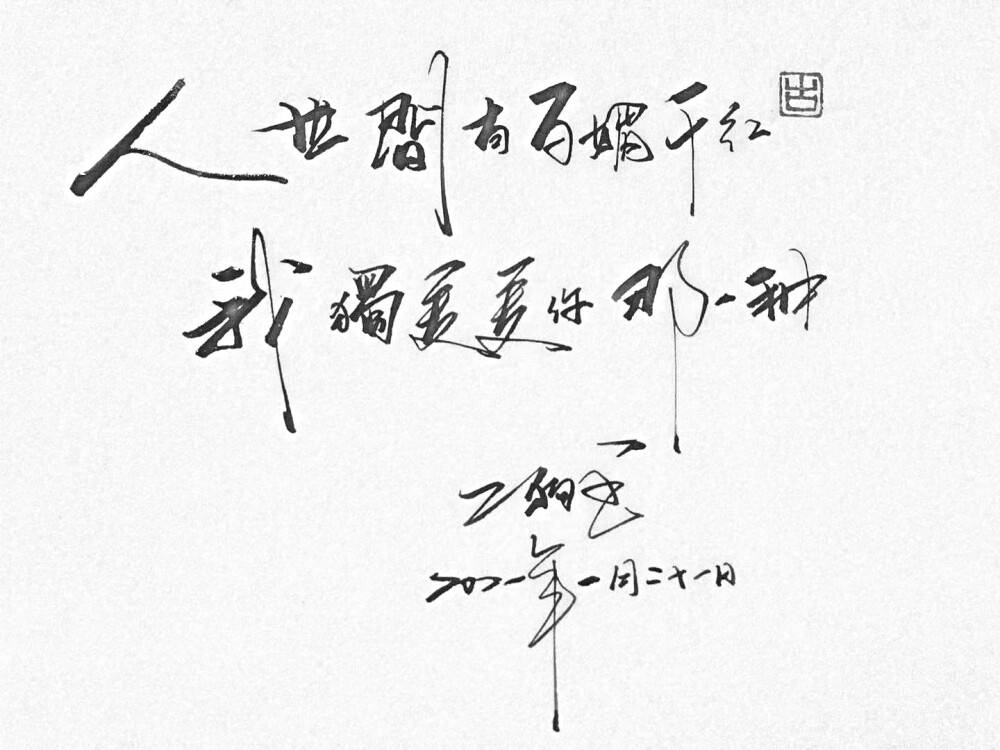 人世間有百媚千红
我獨爱爱你那一种
2021年一月二十一日